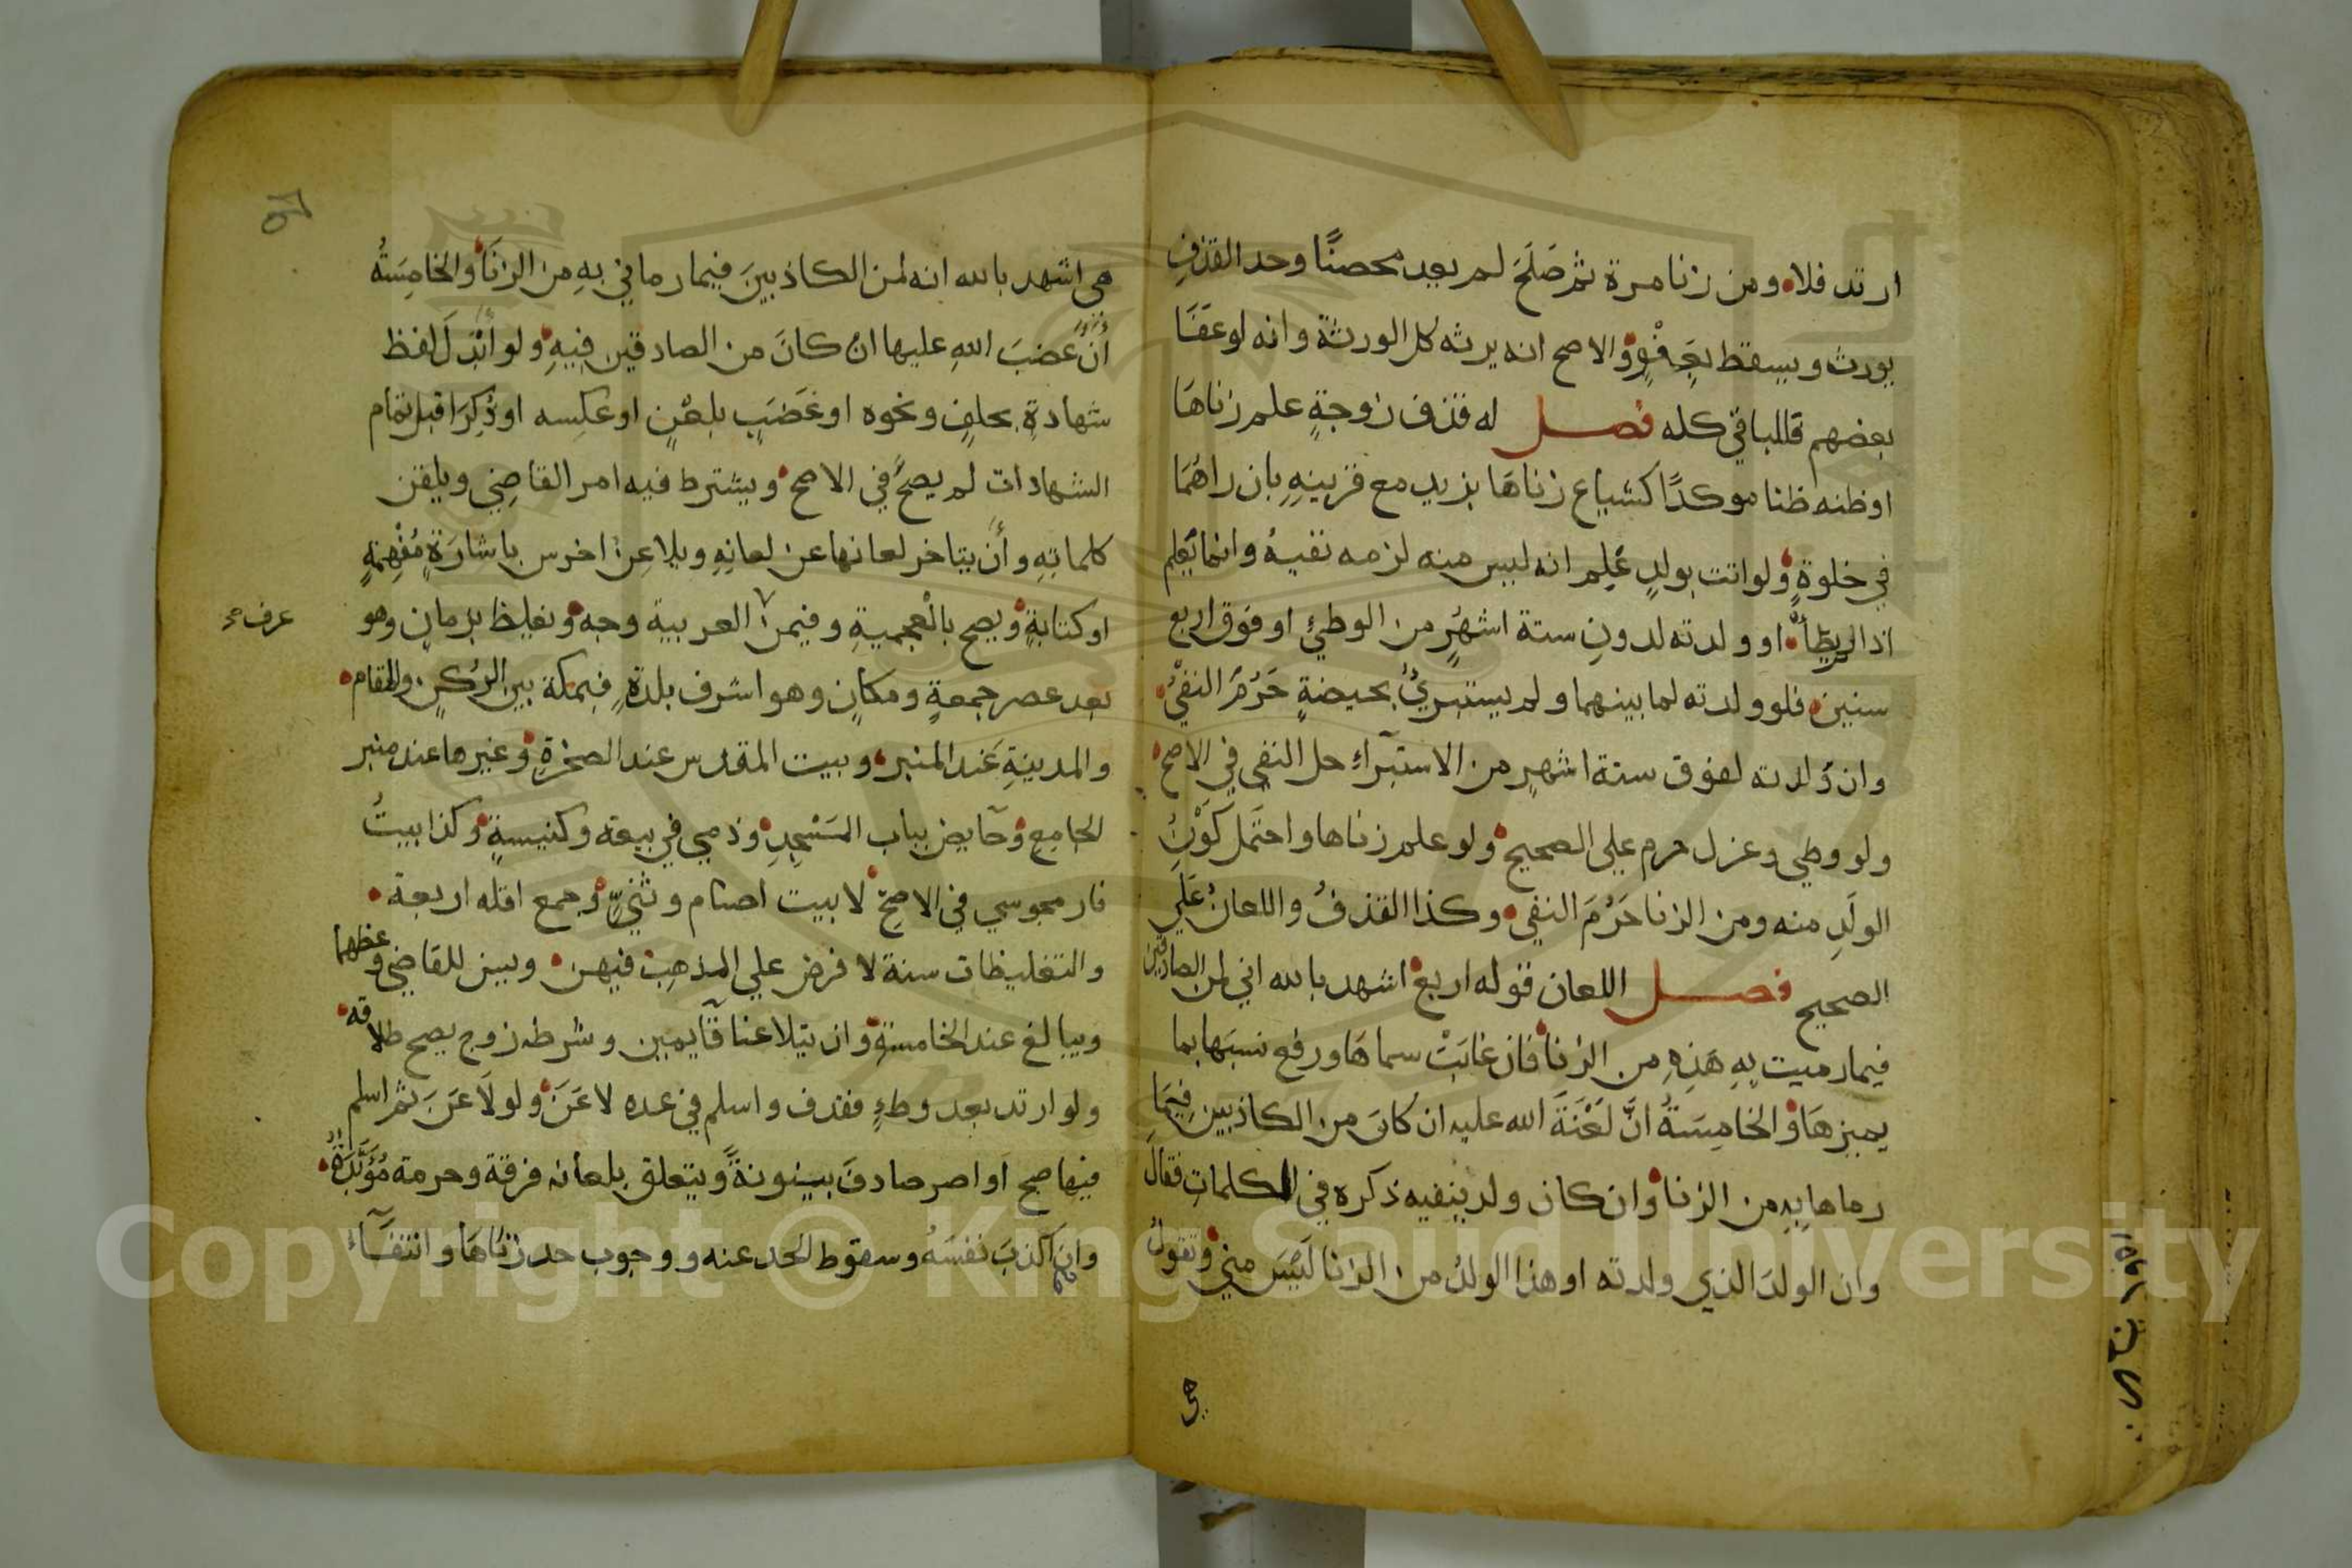 ارتد فلا ومن زنا مرة ثم صَلَحَ لم يعد محصنًا وحد القذفِ
يورث ويسقط بِعَفْوٍ والاصح انه يرثه كل الورثة وانه لو عفَا
بعضهم فللباقي كله فصل له قذف زوجةٍ علم زناهَا
او ظنه ظنا موكدًا كشياع زناهَا بزيد مع قرينهِ بان راهُمَا
في خلوةٍ ولو اتت بولدٍ عَلِم انه ليس منه لزمه نفيهُ وانما يُعلم
اذا لم يطأ او ولدته لدونِ ستة اشهُرٍ من الوطئِ او فوق اربع
سنين فلو ولدته لما بينهما ولم يستبرئْ بحيضةٍ حَرُمَ النفيْ
وان وَلدته لفوق ستة اشهرٍ من الاستبرآءِ حل النفي في الاصح
ولو وطي وعزل حرم علي الصحيح ولو علم زناها واحتَمل كَوْنُ
الولَدِ منه ومن الزنا حَرُمَ النفي وكذا القذفُ واللعانُ عَلَي
الصحيح فصل اللعان قوله اربع اشهد بالله اني لمن الصادقين
فيما رميت بِهِ هَذِهِ من الزنا فان غابَتْ سماهَا ورفع نسبَها بما
يميزهَا والخامِسَةُ انَّ لَعْنَةَ الله عليه ان كانَ من الكاذبين فِيمَا
رماها بِهِ من الزنا وان كان ولد ينفيه ذكره في الكلماتِ فقالَ
وان الولدَ الذي ولدته او هذا الولدُ من الزنا لَيْسَ مني وتقولُ
هي
هي اشهد بالله انه لمن الكاذبينَ فيما رماني بِهِ من الزنَا والخامِسَةُ
أَنَّ غضبَ اللهِ عليها ان كانَ من الصادقين فِيهِ ولو ابْدِلَ لَفظ
شهادةِ بحلفٍ ونحوه او غَضَبٍ بلعْنٍ او عكسِه او ذُكِرَا قبل تمام
الشهادات لم يصحَّ في الاصح ويشترط فيه امر القاضِي ويلقن
كلماتِهِ وأَن يتاخر لعانها عن لعانِهِ ويلاعِنُ اخرس باشارَةٍ مُفْهِمَةٍ
او كتابةٍ ويصح بالْعجميةِ وفيمن العربية وجه وتغليظ بزمانٍ وهو
عرف صح
بعد عصر جمعةٍ ومكانٍ وهو اشرف بلدةٍ فبمكة بين الرُكنِ والمقام
والمدينةِ عَند المنبر وبيت المقدس عند الصخرةِ وغيرها عند منبر
الجامِعِ وحَآيض بباب المَسْجِدِ وذمي في بيعة وكنيسةٍ وكذا بيتُ
نار مجوسي في الاصحّ لا بيت اصنام وثنيٍّ وجمع اقله اربعة
والتغليظات سنة لا فرض علي المذهب فيهن ويسن للقاضي وعظهما
ويبالغ عند الخامسةِ وان يتلاعنا قآيمين وشرطه زوج يصح طلاقه
ولو ارتد بعد وطءٍ فقذف واسلم في عده لاعَنَ ولو لَاعَنَ ثم اسلم
فيها صح او اصر صادفَ بينونةً ويتعلق بلعانه فرقة وحرمة مُؤَبَّدَةٌ
وان اكذبَ نفسَهُ وسقوط الحد عنه ووجوب حد زناهَا وانتفَآءُ
Copyright © King Saud University